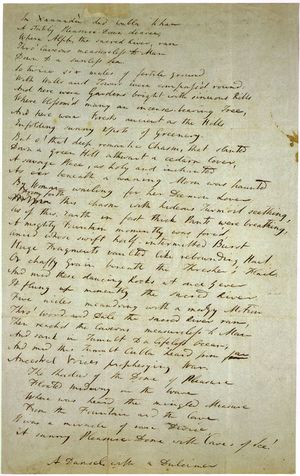 In Xannadù did Cubla Khan
A stately Pleasure-Dome decree;
Where Alph, the sacred River, ran
Thro' Caverns measureless to Man
Down to a sunless Sea.
So twice six miles of fertile ground
With Walls and Towers were compass'd round:
And here were Gardens bright with sinuous Rills
Where blossom'd many an incense-bearing Tree,
And here were Forests ancient as the Hills
Enfolding sunny Spots of Greenery.
But o! that deep romantic Chasm, that slanted
Down a green Hill athwart a cedarn Cover,
A savage Place, as holy and inchanted
As e'er beneath a waning Moon was haunted
By Woman wailing for her Dæmon Lover:
forth this Chasm with hideous Turmoil seething,
As if this Earth in fast thick Pants were breathing,
A mighty Fountain momently was forc'd,
Amid whose swift half-intermitted Burst
Huge Fragments vaulted like rebounding Hail,
Or chaffy Grain beneath the Thresher's Flail:
And mid these dancing Rocks at once & ever
It flung up momently the sacred River.
Five miles meandring with a mazy Motion
Thro' Wood and Dale the sacred River ran,
Then reach'd the Caverns measureless to Man
And sank in Tumult to a lifeless Ocean;
And mid this Tumult Cubla heard from far
Ancestral Voices prophesying War.
The Shadow of the Dome of Pleasure
Floated midway on the Wave
Where was heard the mingled Measure
From the Fountain and the Cave.
It was a miracle of rare Device,
A sunny Pleasure-Dome with Caves of Ice!
A Damsel with a Dulcimer